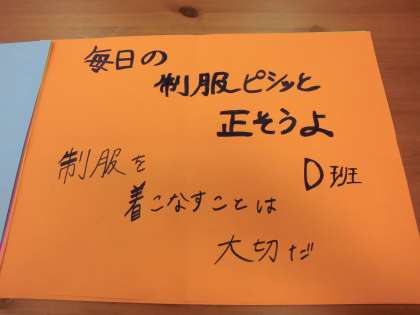 毎日の
制服ピシッと
正そうよ
D班
制服を
着こなすことは
大切だ